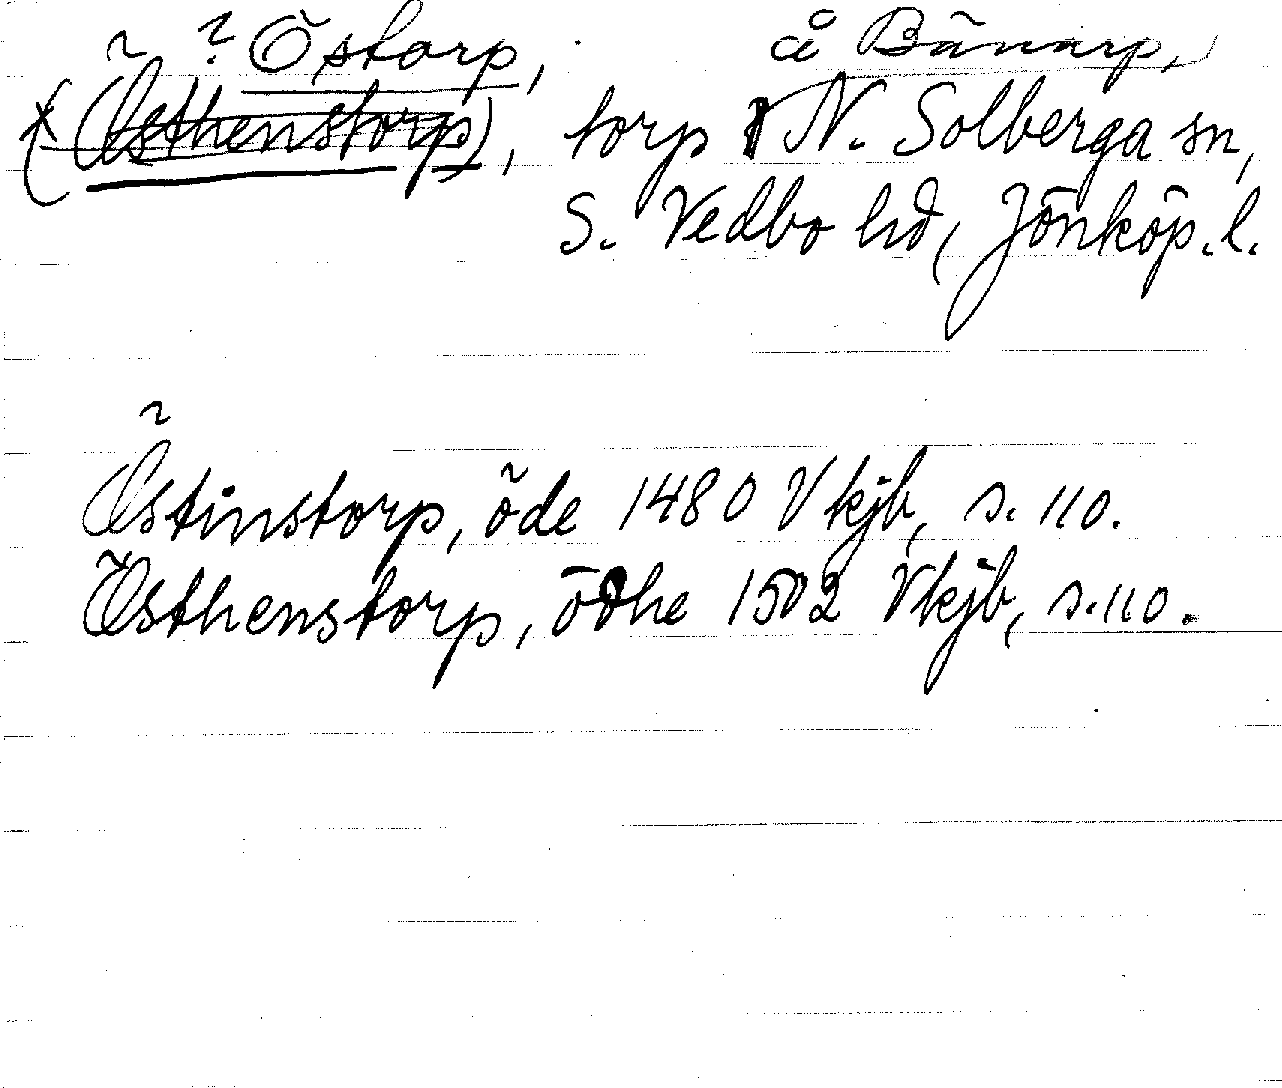 ? Östorp, å Bänarp,
* (Östhenstorp), torp N. Solberga sn,
S. Vedbo hd, Jönköp. l.
Östinstorp, öde 1480 Vkjb, s. 110.
Östhenstorp, ödhe 1502 Vkjb, s. 110.